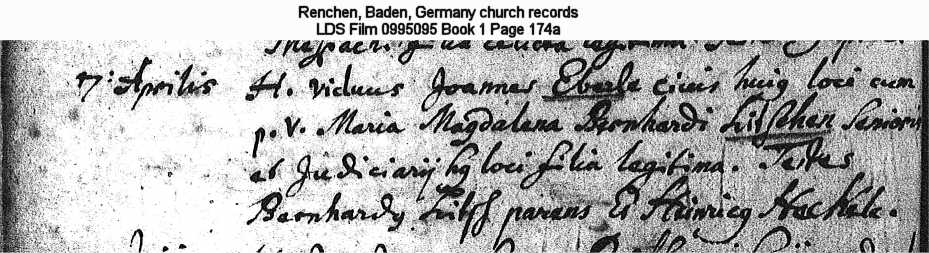 Renchen, Baden, Germany church records
LDS Film 0995095 Book 1 Page 174a
filia legitima
7: Aprilis H. viduus Joannes Eberle civis huig loci cum
p. v. Maria Magdalena Bernhardi Litschen Senioris
et Judiciarij hg loci filia legitima. Testes
Bernhardg parens Et Heinricg